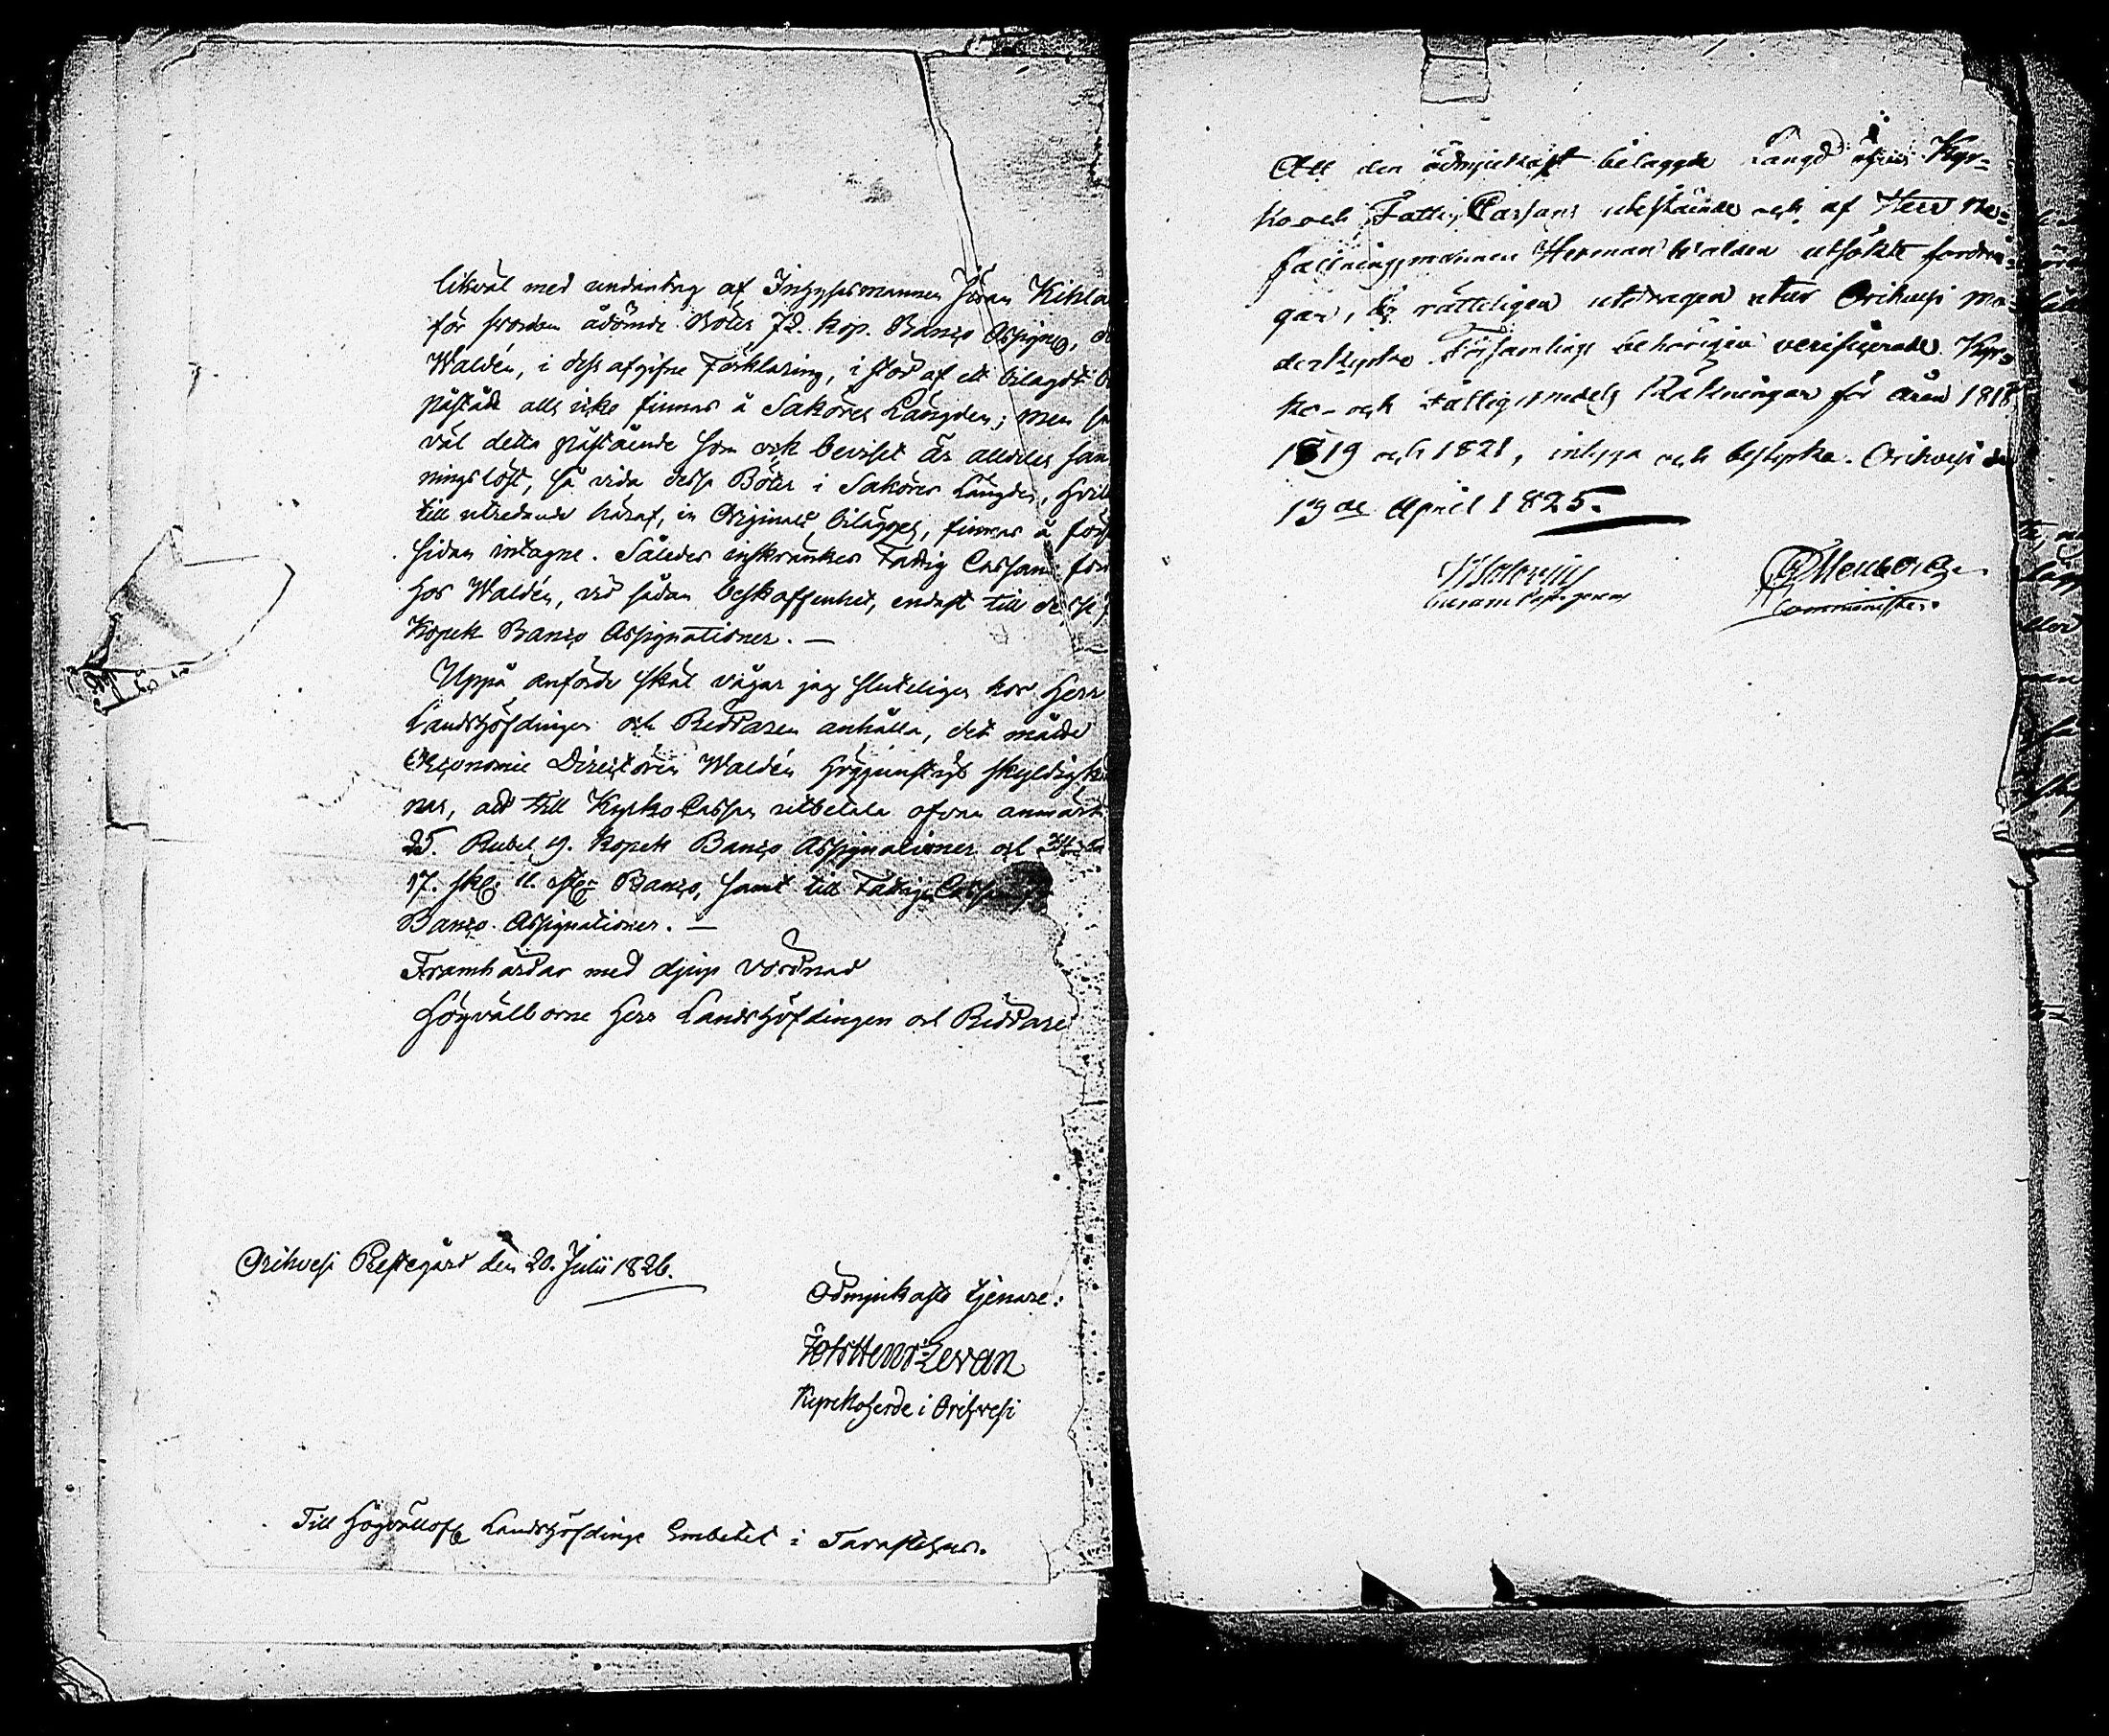 likväl med undantag af Inhysesmannen Göran Kihla
för svordom ådömde Böter 72. kop. Banco Assign,
Waldén, i dess afgifne Förklaring, i stöd af ett bilagdt
påstådt alls icke finnas å Saköres Längden; men
väl detta påstående som ock beviset är alldeles san
ningslöst, så vida dessa Böter i Saköres Längden,
till utredande häraf, in Originali bilägges, finnas å
sidan intagne. Således inskränkes Fattig Cassans
hos Waldén, vid sådan beskaffenhet, endast till dessa
Kopek Banco Assignationer. —
Uppå anförde skäl vågar jag sluteligen hos Herr
Landshöfdingen och Riddaren anhålla, det måtte
Oeconomie Directören Waldén höggunstigt skyldig
nas, att till Kyrko Cassan utbetala ofvan anmärk
25. Rubel 9. Kopek Banco Assignationer och
17. sk. 11. st. Banco, samt till Fattig
Banco Assignationer. —
Framhärdar med djup vördnad
Högvälborne Herr Landshöfdingen och Riddare
Orihvesi Prestegård den 20. Julii 1826.
Ödmjukaste tjenare:
Levan
Kyrkoherde i Orihvesi
Till Höglofl Landshöfdinge Embetet i Tavastehus.
Att den ödmjukast bilaggde Längd öfver Kyr=
ko och Fattig Cassans utestående och af Herr Be=
fallningsmannen Herman Walden utsökte fordrin=
gar, är rätteligen utdragen utur Orihvesi Mo=
derkyrko Församlings behörigen verificerade Kyr=
ko- och Fattigmedels Räkningar för åren 1818
1819 och 1821, intyga och bestyrka. Orihvesi den
13de April 1825.
Comminister.